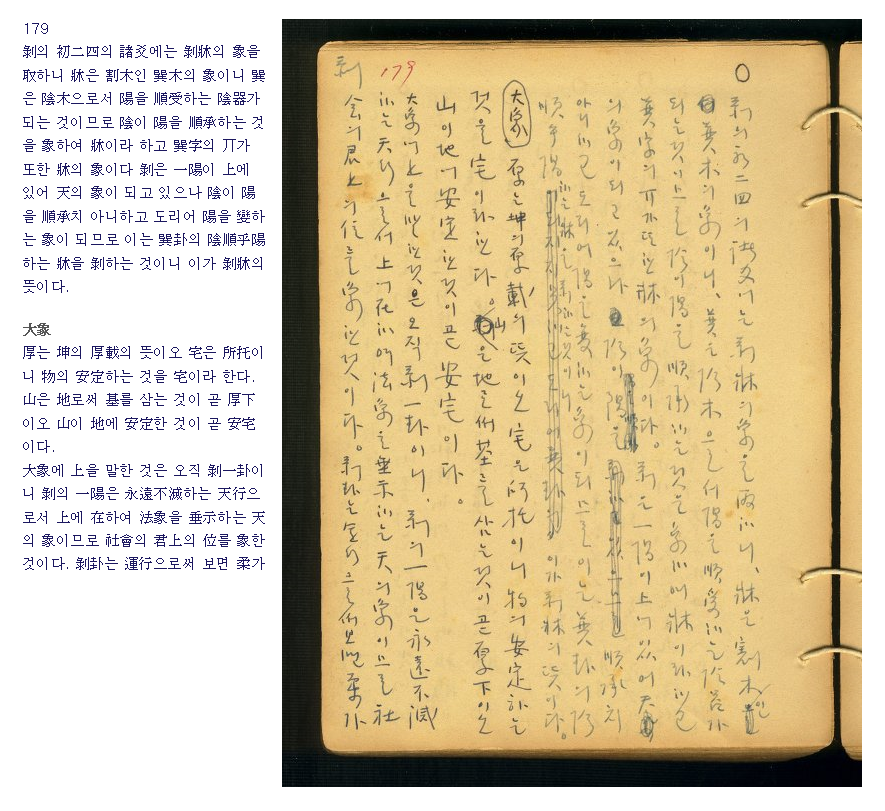 179
剝의 初二四의 諸爻에는 剝牀의 象을
取하니 牀은 割木인 巽木의 象이니 巽
은 陰木으로서 陽을 順受하는 陰器가
되는 것이므로 陰이 陽을 順承하는 것
을 象하여 牀이라 하고 巽字의 丌가
또한 牀의 象이다 剝은 一陽이 上에
있어 天의 象이 되고 있으나 陰이 陽
을 順承치 아니하고 도리어 陽을 變하
는 象이 되므로 이는 巽卦의 陰順乎陽
하는 牀을 剝하는 것이니 이가 剝牀의
뜻이다.
大象
厚는 坤의 厚載의 뜻이오 宅은 所托이
니 物의 安定하는 것을 宅이라 한다.
山은 地로써 基를 삼는 것이 곧 厚下
이오 山이 地에 安定한 것이 곧 安宅
이다.
大象에 上을 말한 것은 오직 剝一卦이
니 剝의 一陽은 永遠不滅하는 天行으
로서 上에 在하여 法象을 垂示하는 天
의 象이므로 社會의 君上의 位를 象한
것이다. 剝卦는 運行으로써 보면 柔가
剝 179
剝의 初二四의 諸爻에는 剝牀의 象을 取하니, 牀은 割木인
巽木의 象이니, 巽은 陰木으로서 陽을 順受하는 陰器가
되는것이므로 陰이 陽을 順承하는것을 象하여 牀이라하고
巽字의 丌가 또한 牀의 象이다。 剝은 一陽이 上에 있어 天
의 象이 되고 있으나 陰이 陽을 順承치
아니하고 도리어 陽을 變하는 象이 되므로 이는 巽卦의 陰
順乎陽하는 牀을 剝하는것이니 이가 剝牀의 뜻이다。
大象 厚는 坤의 厚載의 뜻이오 宅은 所托이니 物의 安定하는
것을 宅이라 한다。 山은 地로써 基를 삼는것이 곧 厚下이오
山이 地에 安定한것이 곧 安宅이다。
大象에 上을 말한것은 오직 剝一卦이니, 剝의 一陽은 永遠不滅
하는 天行으로서 上에 在하여 法象을 垂示하는 天의 象이므로 社
會의 君上의 位를 象한것이다。 剝卦는 運行으로써 보면 柔가